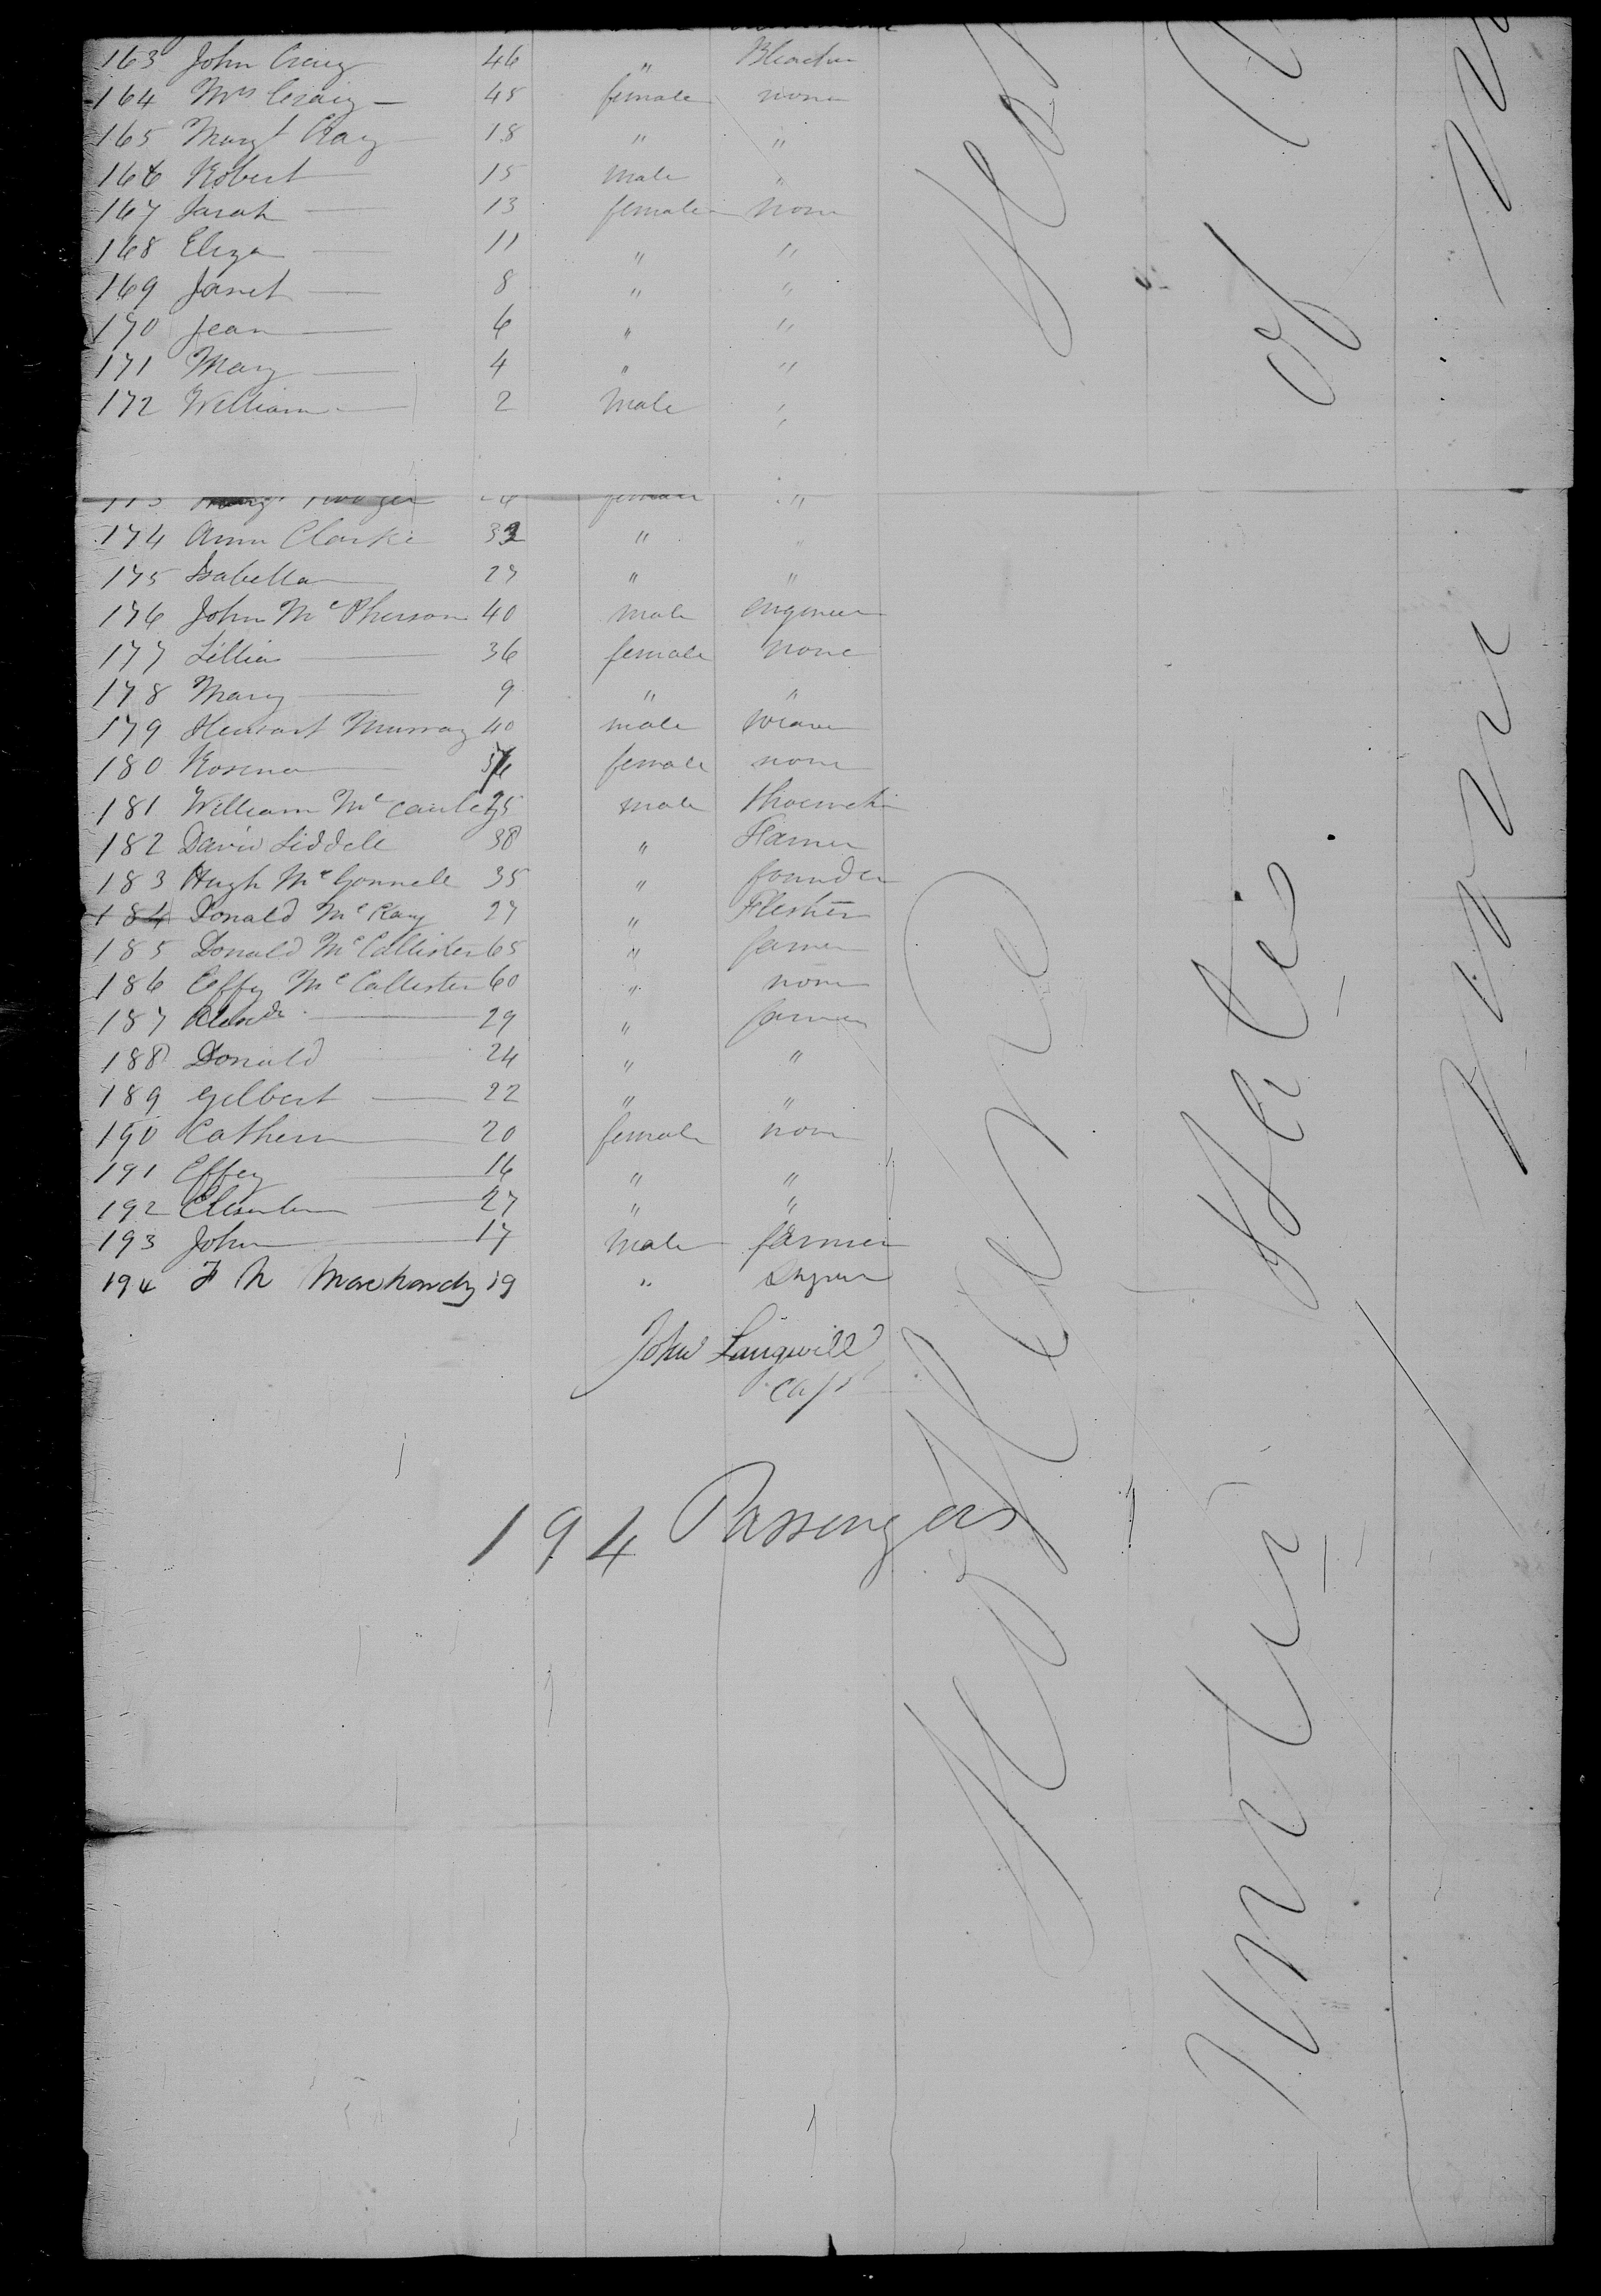 163 John Craig 46 " Bleacher
164 Mrs Craig — 45 female none
165 Margt Craig 18 " "
166 Robert — 15 male "
167 Sarah — 13 female none
168 Eliza — 11 " "
169 Janet — 8 " "
170 Jean — 6 " "
171 Mary — 4 " "
172 William — 2 Male "
173 female "
174 Ann Clarke " "
175 Isabella — 27 " "
176 John McPherson 40 male engineer
177 Lillias — 36 female none
178 Mary — 9 " "
179 Stewart Murray 40 male weaver
180 Rosena — female none
181 William McCauley 25 male Shoemak
182 David Liddell 38 " Farmer
183 Hugh McConnell 35 " founder
184 Donald McKay 27 " Flesher
185 Donald McCallister 65 " farmer
186 Effy McCallister 60 " none
187 Alexdr — 29 " farmer
188 Donald — 24 " "
189 Gilbert — 22 " "
190 Cathern — 20 female none
191 Effey — 16 " "
192 — 27 " "
193 John — 17 Male farmer
194 19 "
John Langwill
Capt
194 Passengers
States
United
of